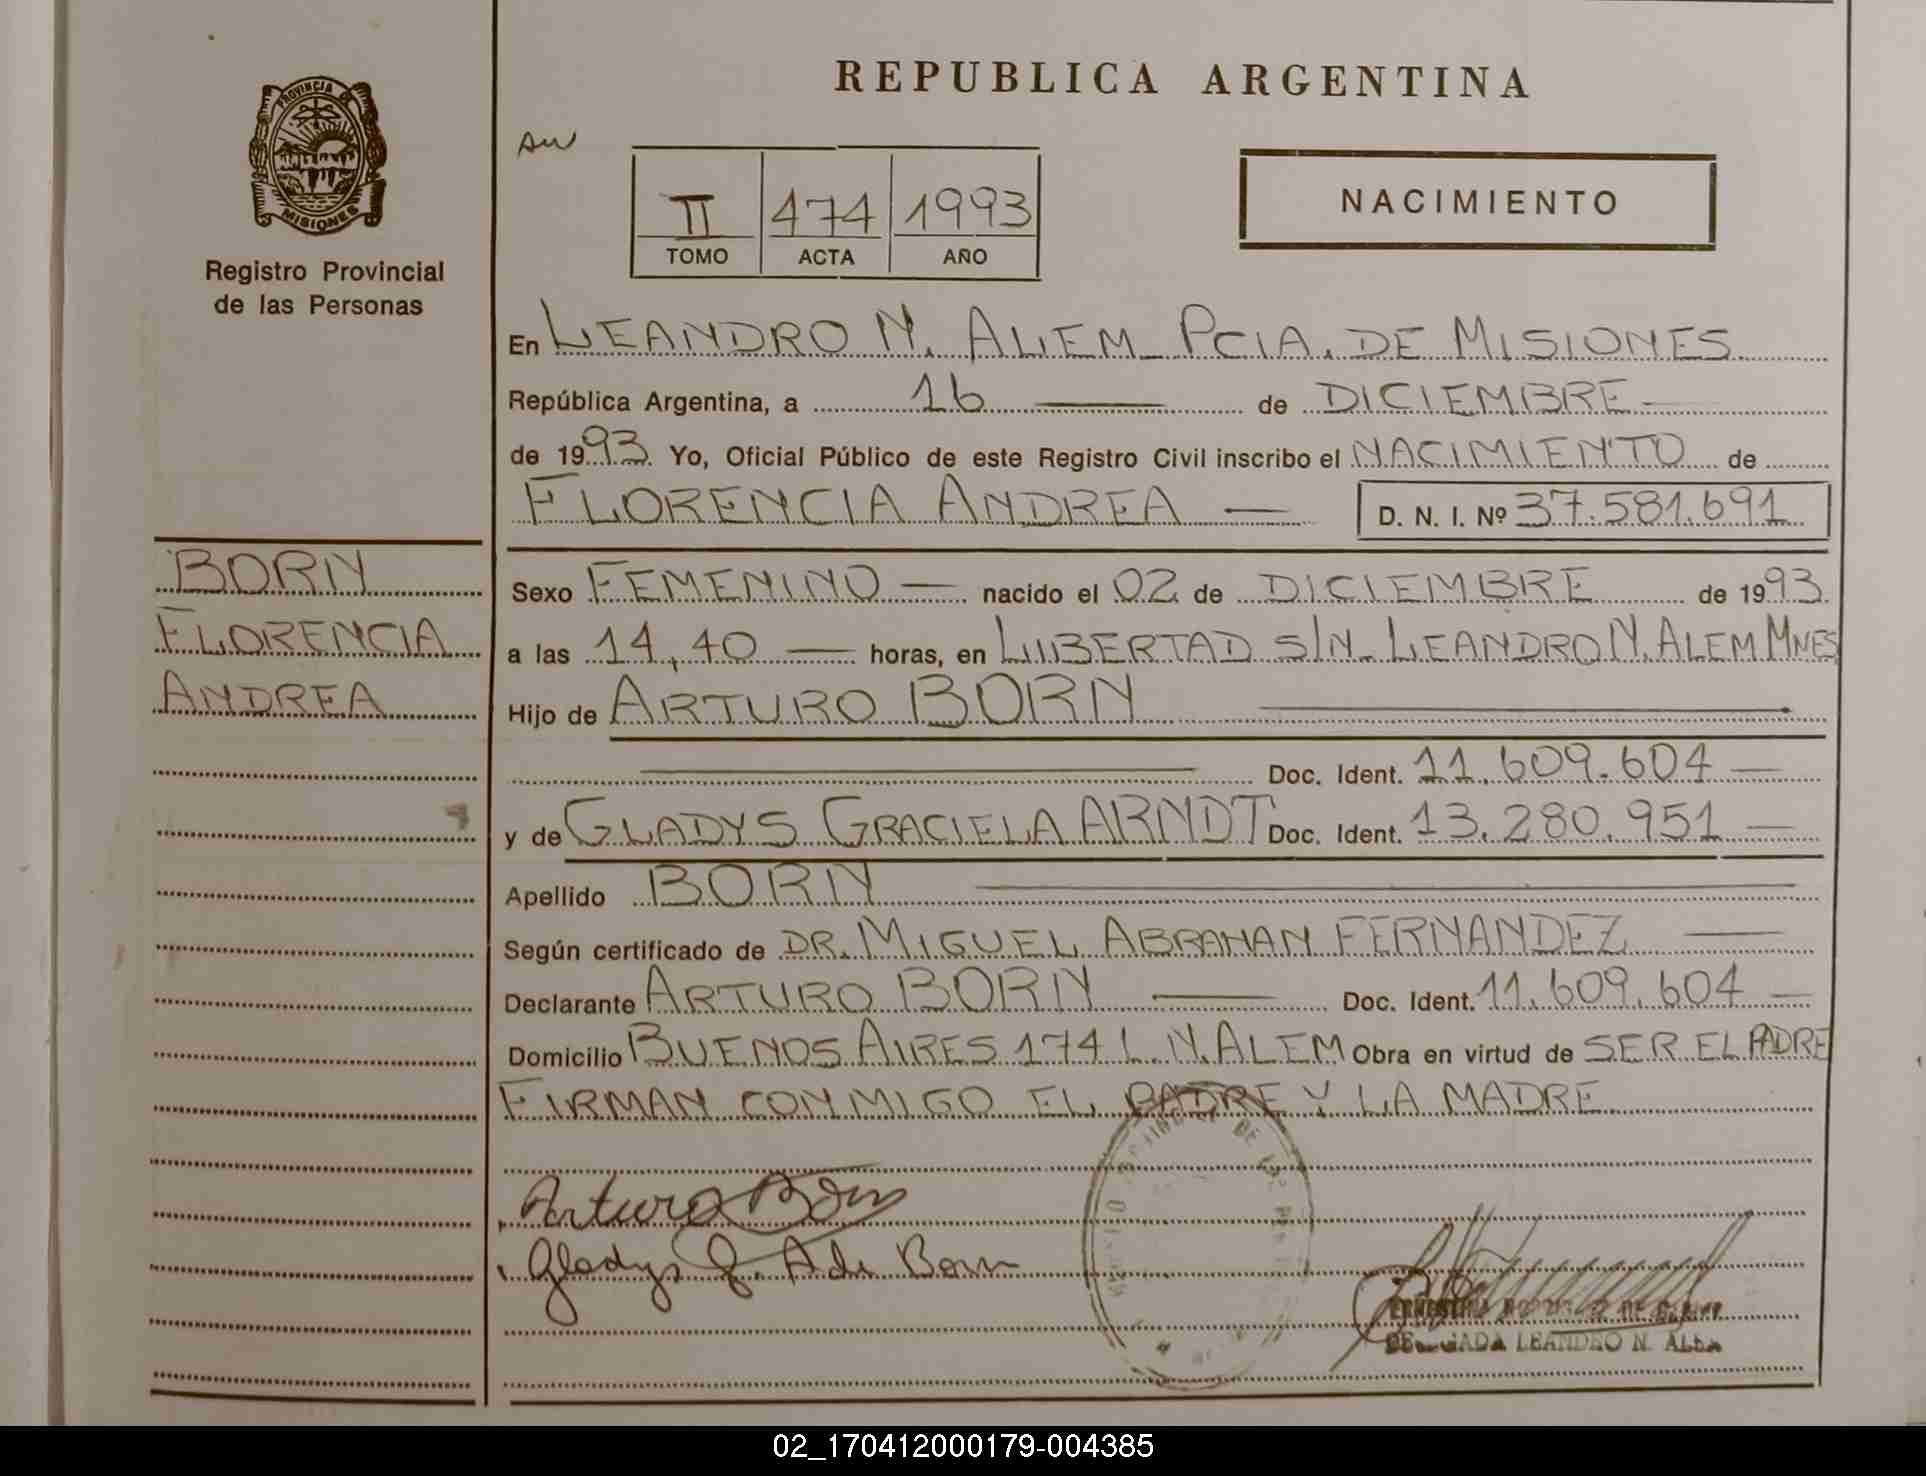 REPUBLICA ARGENTINA
PROVINCIA DE
MISIONES
Registro Provincial
de las Personas
II 474 1993
TOMO ACTA AÑO
NACIMIENTO
En LEANDRO N. ALEM_ PCIA. DE MISIONES
República Argentina, a 16 de DICIEMBRE
de 1993. Yo, Oficial Público de este Registro Civil inscribo el NACIMIENTO de
FLORENCIA ANDREA — D. N. I. Nº 37.581.691
BORN
FLORENCIA
ANDREA
Sexo FEMENINO — nacido el 02 de DICIEMBRE de 1993
a las 14,40 — horas, en LIBERTAD S/N_ LEANDRO N. ALEM MNES
Hijo de ARTURO BORN
Doc. Ident. 11.609.604 —
y de GLADYS GRACIELA ARNDT Doc. Ident. 13.280.951 —
Apellido BORN
Según certificado de DR. MIGUEL ABRAHAN FERNANDEZ —
Declarante ARTURO BORN — Doc. Ident. 11.609.604 —
Domicilio BUENOS AIRES 174 L.N.ALEM Obra en virtud de SER EL PADRE
FIRMAN CONMIGO EL PADRE Y LA MADRE
Arturo Born
Gladys G. A de Born
LEANDRO N. ALEM
02_170412000179-004385